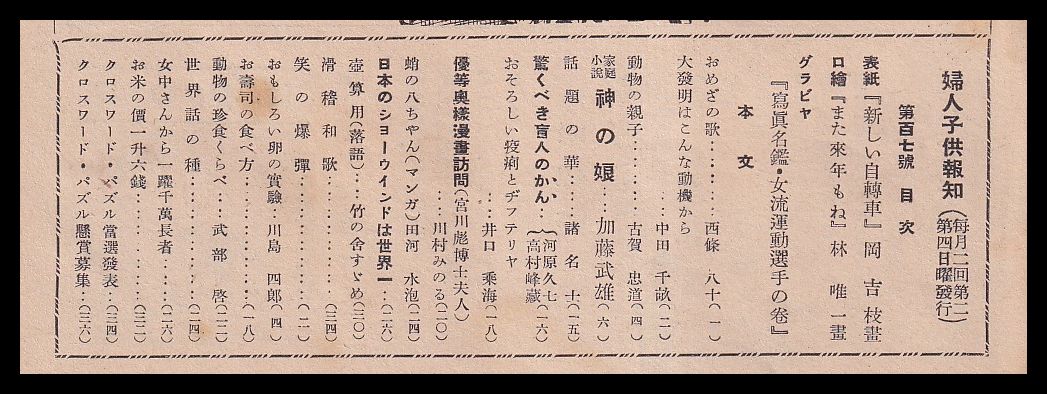 婦人子供報知（每月二回第二第四日曜發行）
第百七號　目次
表紙『新しい自轉車』岡　吉　枝畫
口繪『また來年もね』林　唯　一畫
グラビヤ
『寫眞名鑑・女流運動選手の卷』
本文
おめざの歌……西條　八十（一）
大發明はこんな動機から
……中田　千畝（二）
動物の親子……古賀　忠道（四）
家庭小說　神の娘……加藤武雄（六）
話題の華……諸名士（一五）
驚くべき盲人のかん……｛河原久七　高村峰藏（一六）
おそろしい疫痢とヂフテリヤ
……井口　乘海（一八）
優等奧樣漫畫訪問（宮川彪博士夫人）
……川村みのる（二〇）
蛸の八ちやん（マンガ）田河　水泡（二四）
日本のショーウインドは世界一……（二六）
壺算用（落語）……竹の舍すゞめ（三〇）
滑稽和歌……（三四）
笑の爆彈……（二）
おもしろい卵の實驗…川島　四郎（四）
お壽司の食べ方……（一八）
動物の珍食くらべ……武部　啓（二二）
世界話の種……（二四）
女中さんから一躍千萬長者……（二六）
お米の價一升六錢……（三二）
クロスワード・パズル當選發表……（三四）
クロスワード・パズル懸賞募集……（三六）